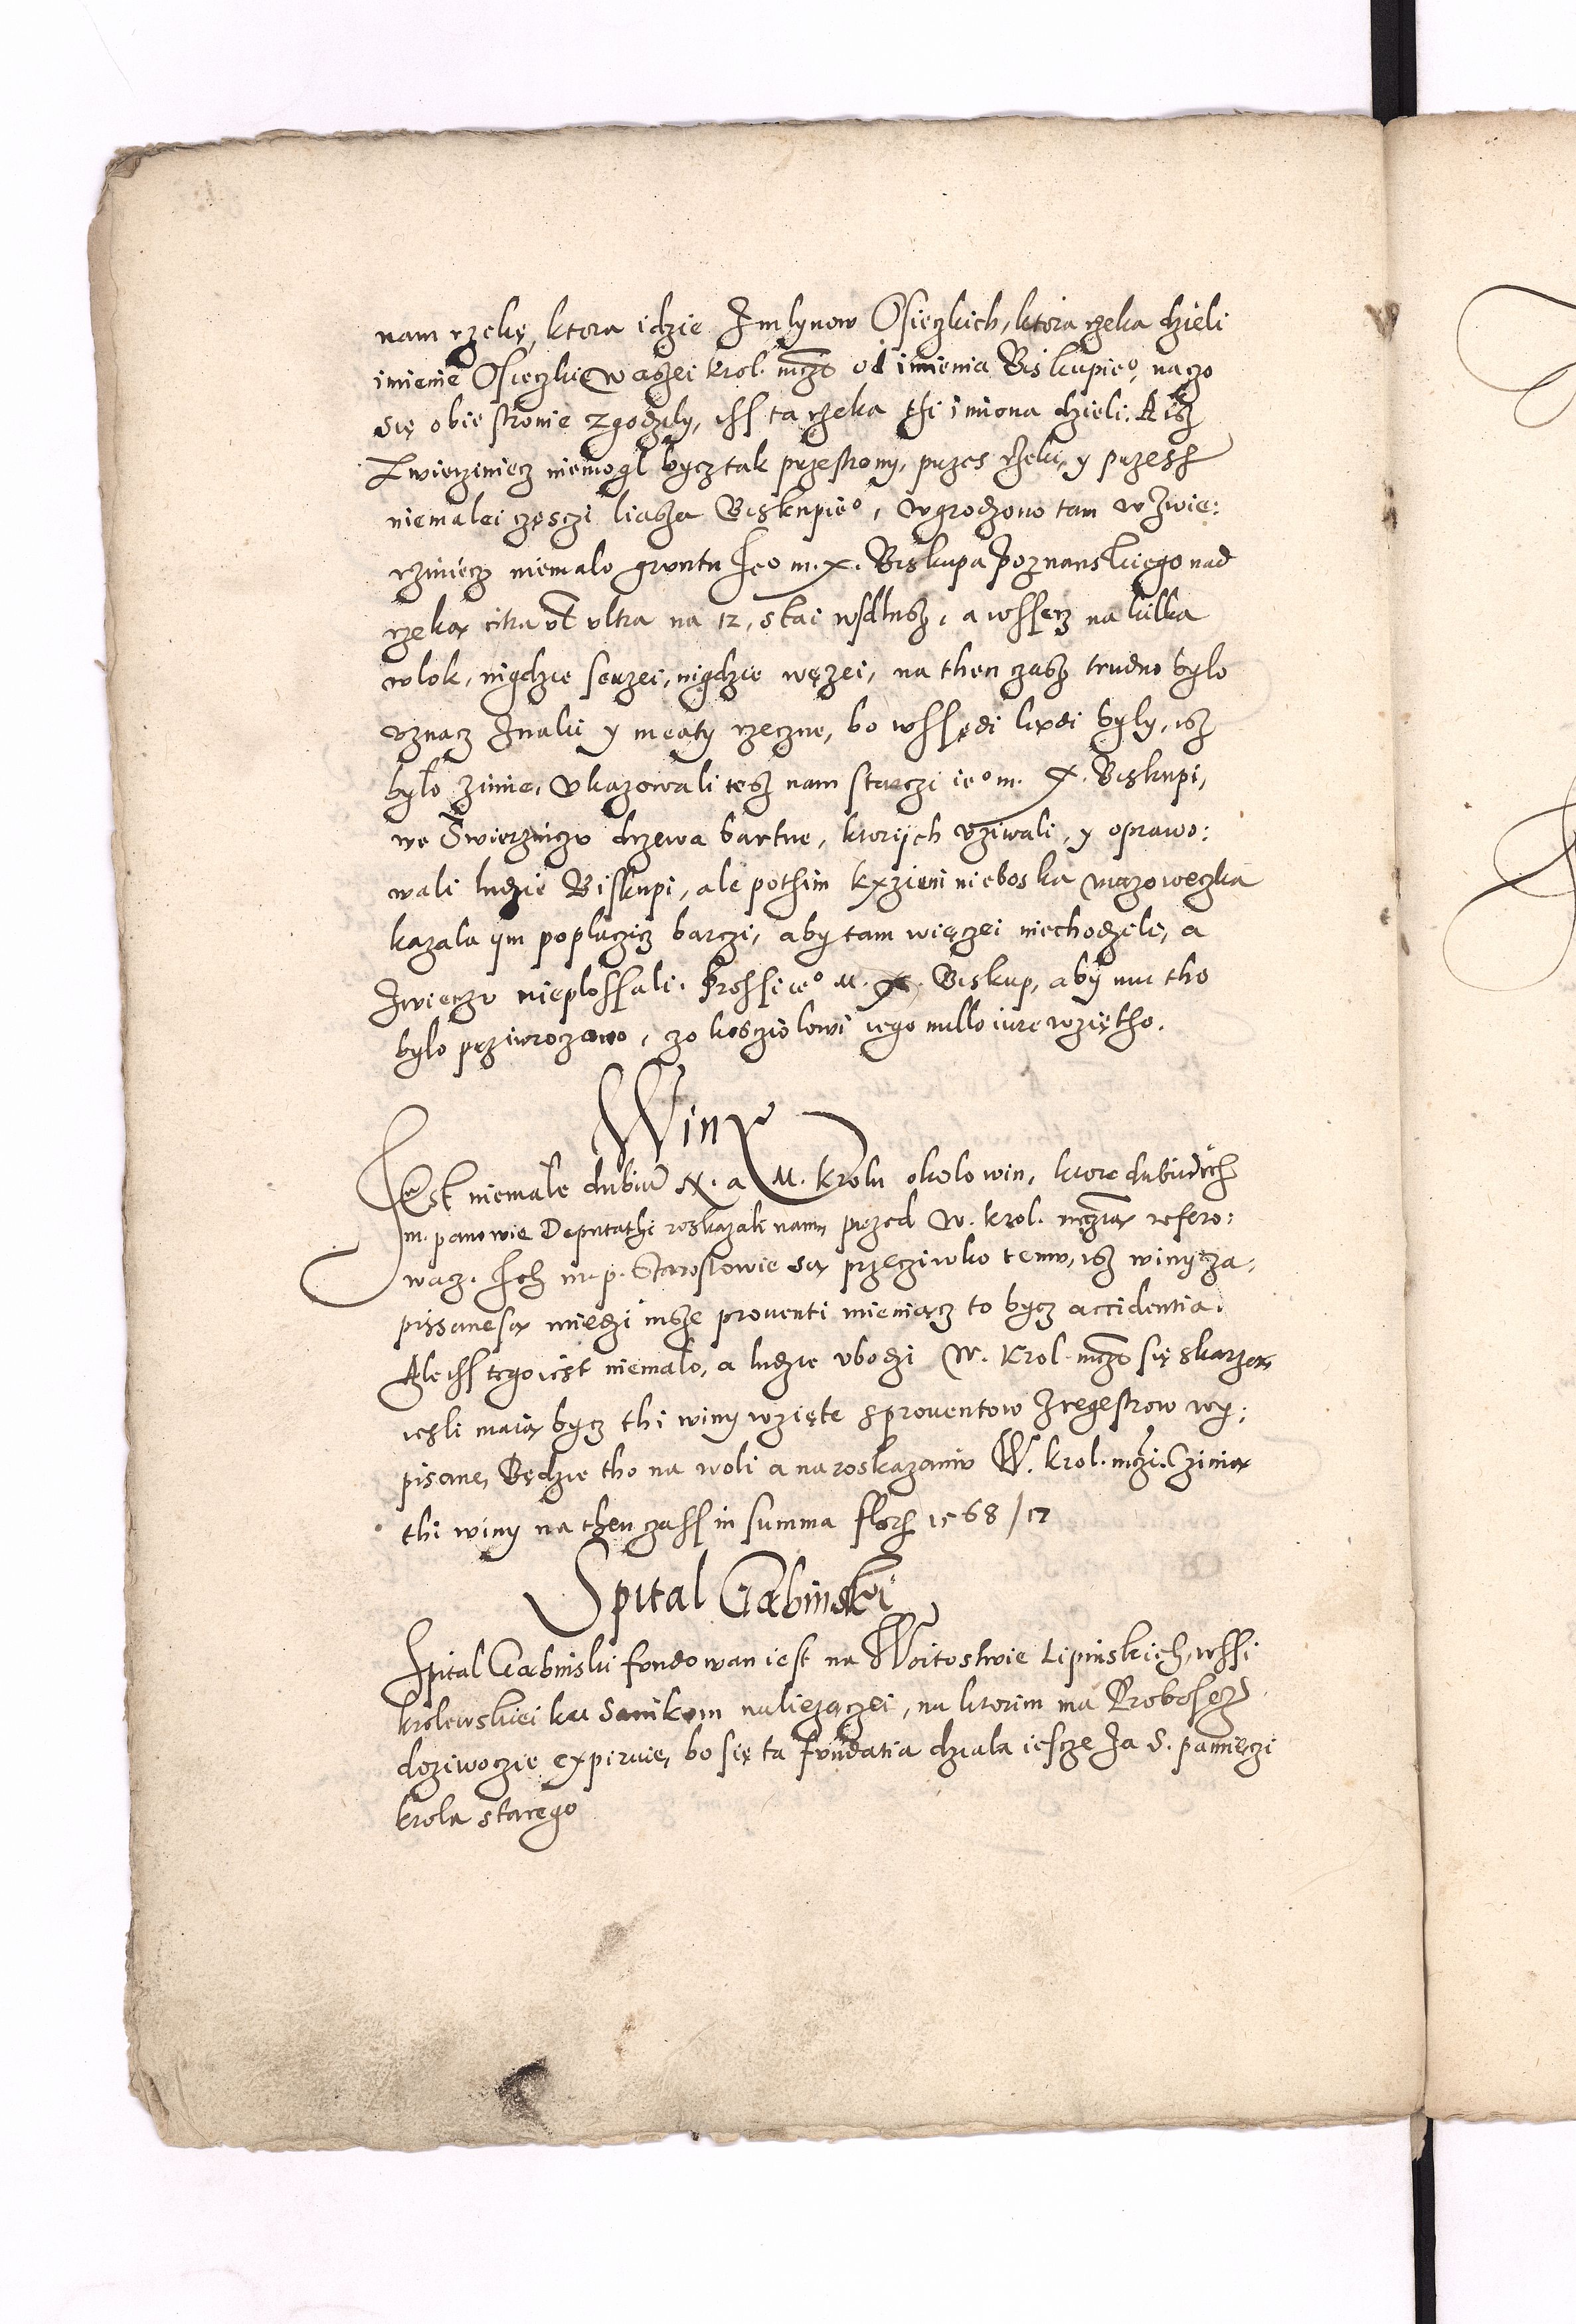 nam rzekę, ktora idzie z mlynow Osieczkich, ktora rzeka dzieli
imienie Osieczkie waszei krol. mczi od imienia Biskupieo, naczo
się obie stronie zgodzily, iss ta rzeka thi imiona dzieli. A isz
Zwierziniecz niemogl bycz tak przestrony, przes rzeki, y przess
niemalei częsczi liassa Biskupieo, wgrodzono tam w zwie:
rziniecz niemalo grvntu Jeo m. x. Biskupa Poznanskiego nad
rzeką citra et vltra na 12, stai wsdlusz, a wsserz na kilka
wlok, nigdzie serzei, nigdzie węzei, na then czasz trudno bylo
vznacz znaki y meaty rzeczne, bo wssędi lodi byly, isz
bylo zimie, vkazowali tesz nam starczi ieo m. X. Biskupi,
we Zwierzinczv drzewa bartne, ktorijch vziwali, y oprawo:
wali ludzie Biskupi, ale pothim kxzieni nieboska mazoweczka
kazala ym poplaczicz barczi, aby tam więczei niechodzili, a
zwierzv nieplossali. Prossi ieo M. X. Biskup, aby mu tho
bylo prziwroczono, czo kosciolowi iego nullo iure wziętho.
Winy
Jest niemale dubiu N. a M. krolu okolo win, ktore dubiu ich
m. panowie Deputathi roskazali nam przed w. krol. mczią refero:
wacz. Ich m. p. Starostowie są przecziwko temv, isz winy za:
pissane są miedzi insze proventi mieniącz to bycz accidentia.
Ale iss tego iest niemalo, a ludzie vbodzi W. Krol. mczi się skarzą,
iesli maią bycz thi winy wzięte s proventow z regestrow wy:
pisane, Będzie tho na woli a na roskazaniv W. krol. mczi. Czinią
thi winy na then czass in summa flor. 1568/17
Spital Gąbinski
Spital Gąbinski fundowan iest na Woitostwie Lipinskich, wssi
krolewskiei ku Sanikom nalieżączei, na ktorim ma Proboscz
doziwoczie expiruie, bo się ta fundatia dziala iescze za S. pamięczi
krola starego